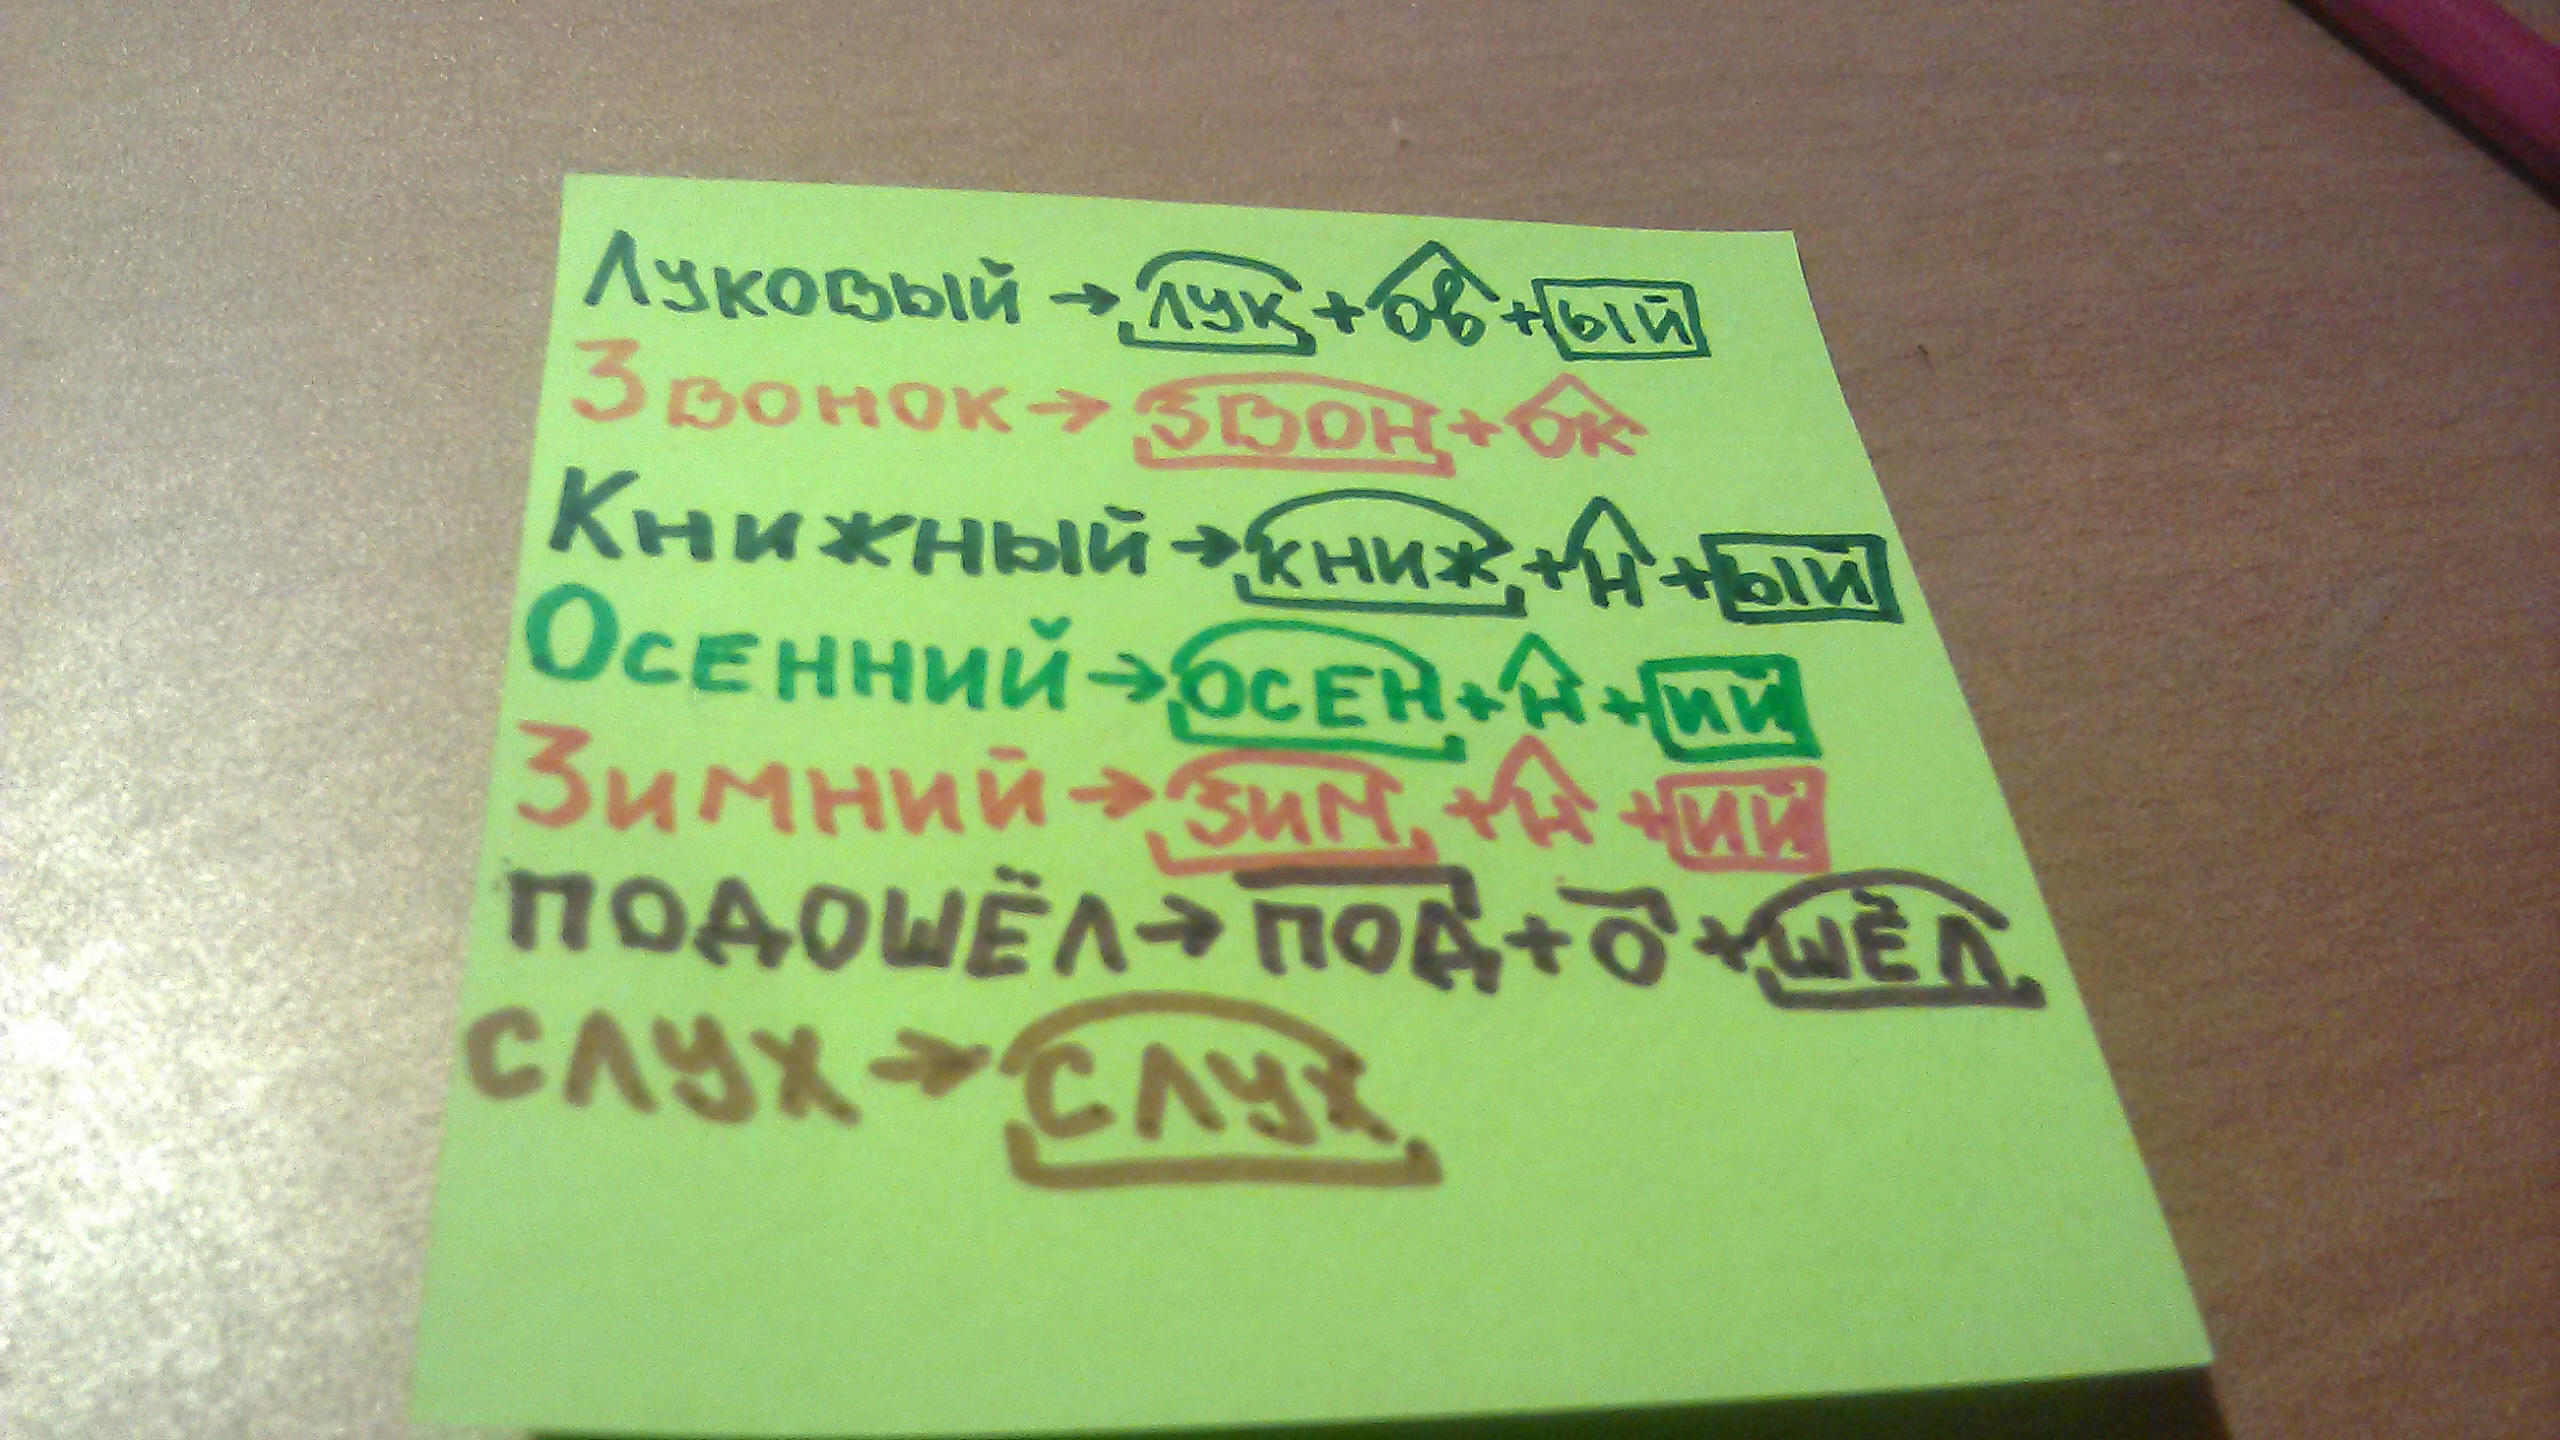 Луковый → лук + ов + ый
Звонок → звон + ок
Книжный → книж + н + ый
Осенний → осен + н + ий
Зимний → зим + н + ий
ПОДОШЁЛ → ПОД + О + ШЁЛ
СЛУХ → СЛУХ